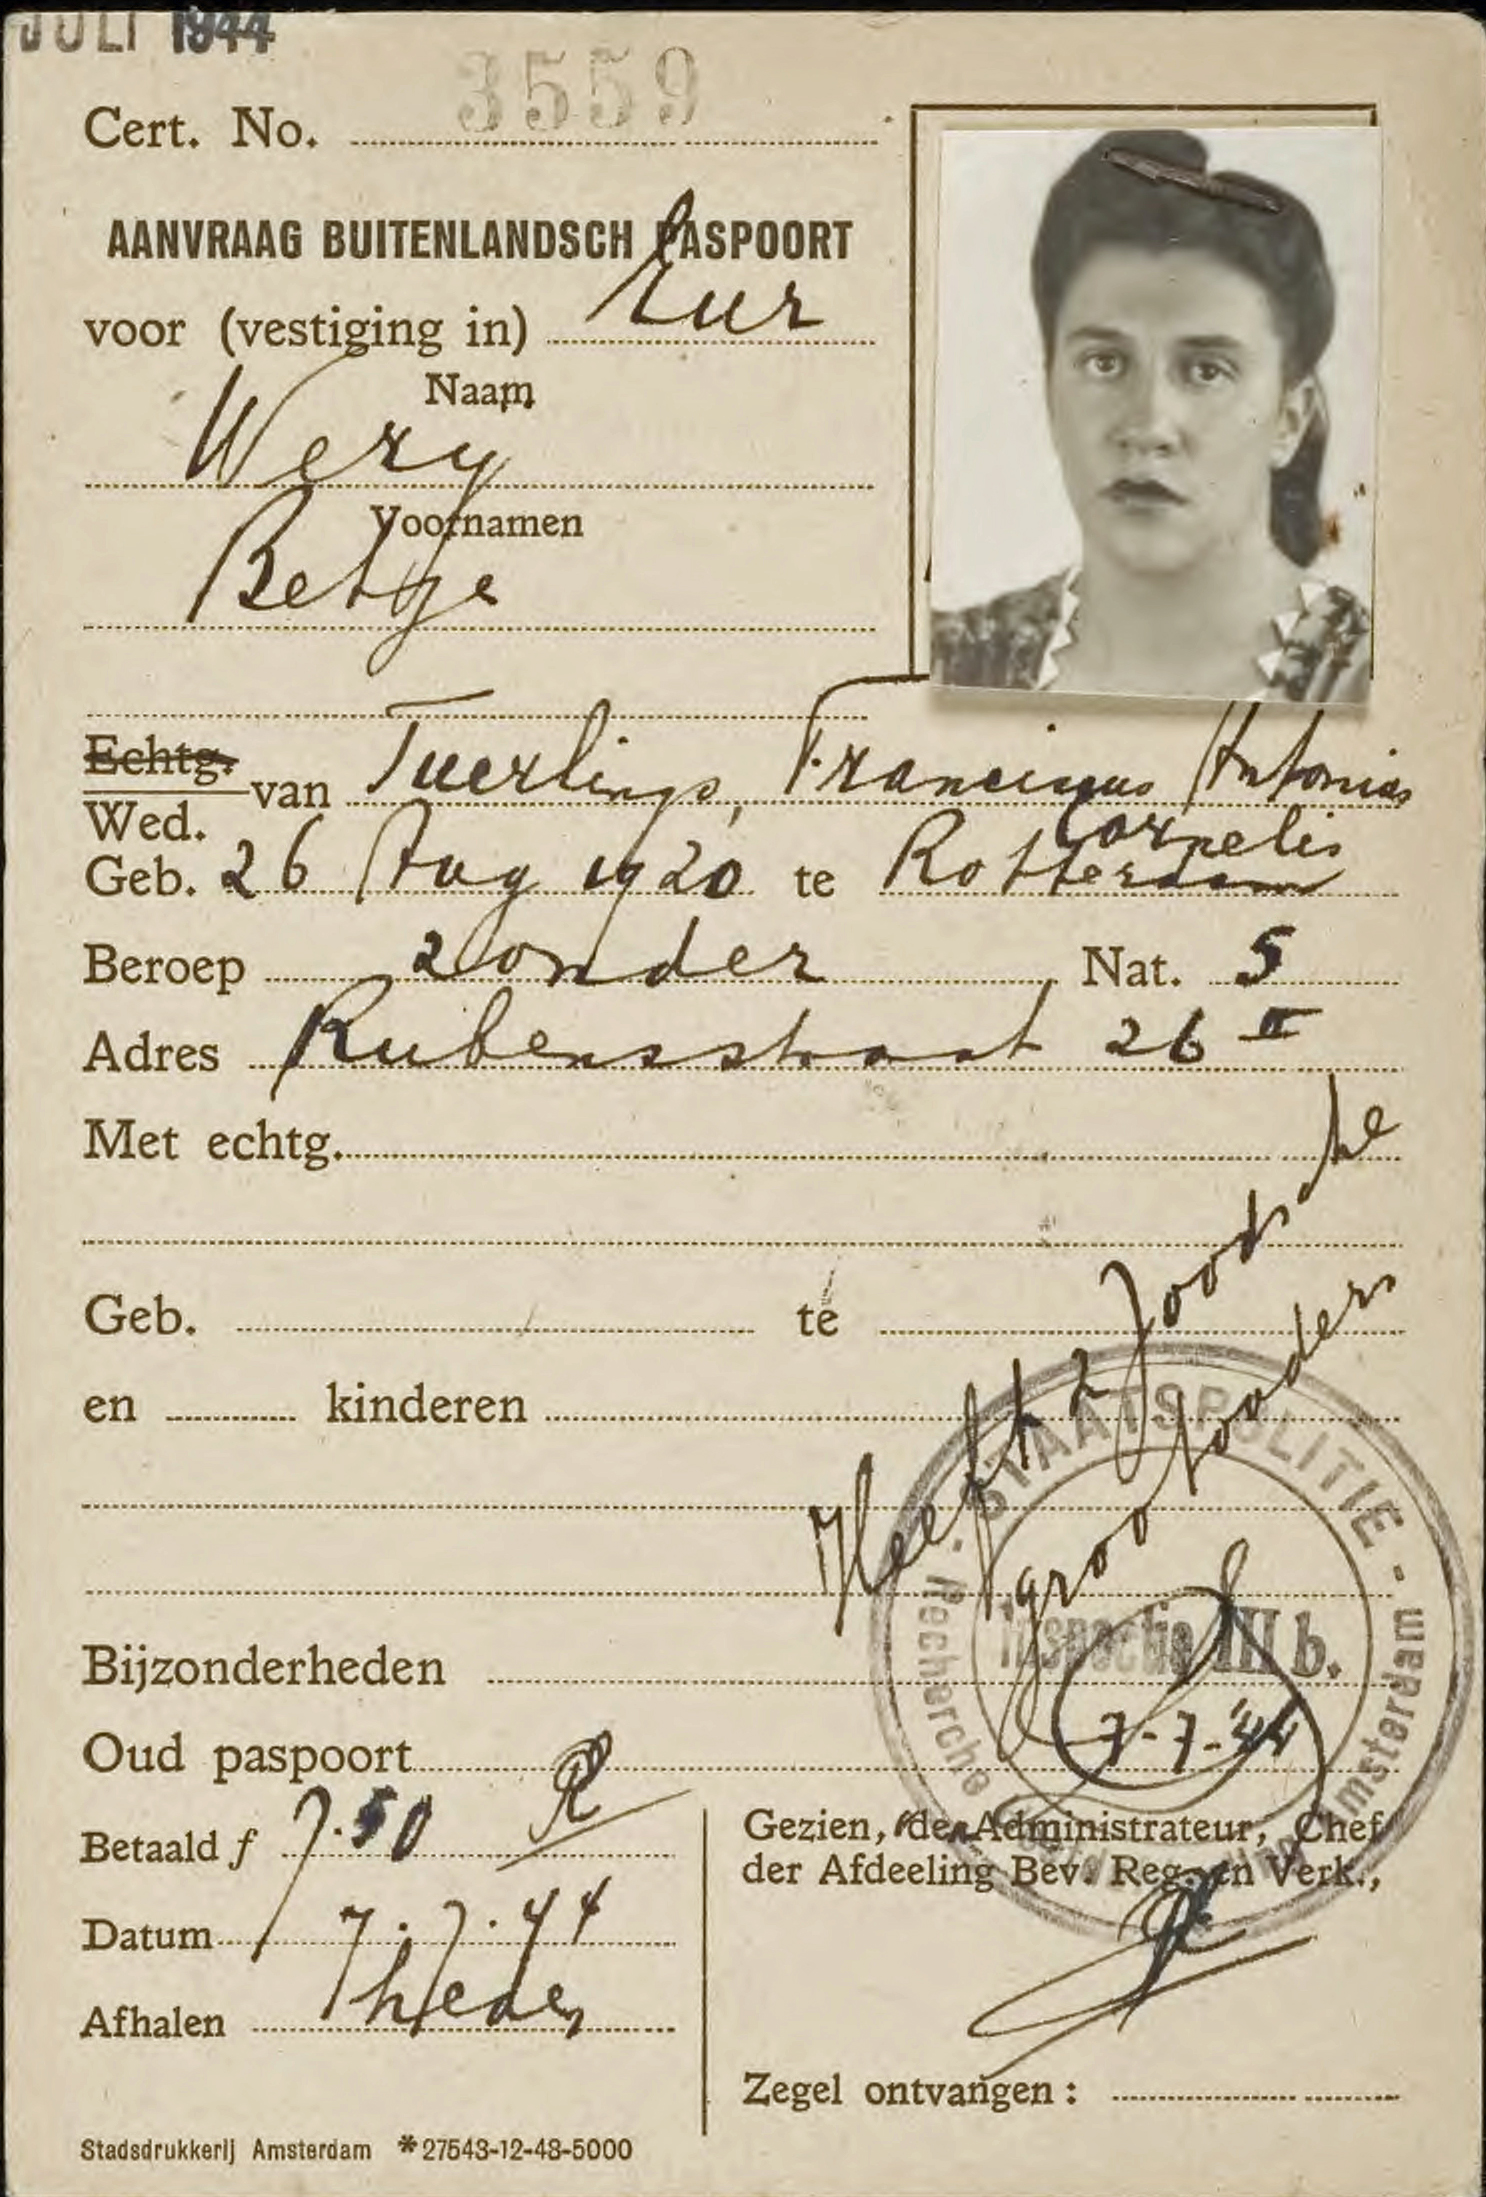 JULI 1944
3559
Cert. No.
AANVRAAG BUITENLANDSCH PASPOORT
voor (vestiging in) Eur
Naam
Wery
Voornamen
Betje
Echtg. van Tuerlings, Franciscus Antonius
Wed. Cornelis
Geb. 26 Aug 1920 te Rotterdam
Beroep zonder Nat. 5
Adres Rubensstraat 26 II
Met echtg.
Geb. te
en kinderen
Heeft 2 Joodsche
grootouders
STAATSPOLITIE
Recherche Amsterdam
Inspectie III b.
7-7-'44
Bijzonderheden
Oud paspoort
Betaald f 7.50 R
Datum 7.7.44
Afhalen
Gezien, de Administrateur, Chef
der Afdeeling Bev. Reg. en Verk.,
Zegel ontvangen:
Stadsdrukkerij Amsterdam *27543-12-43-5000